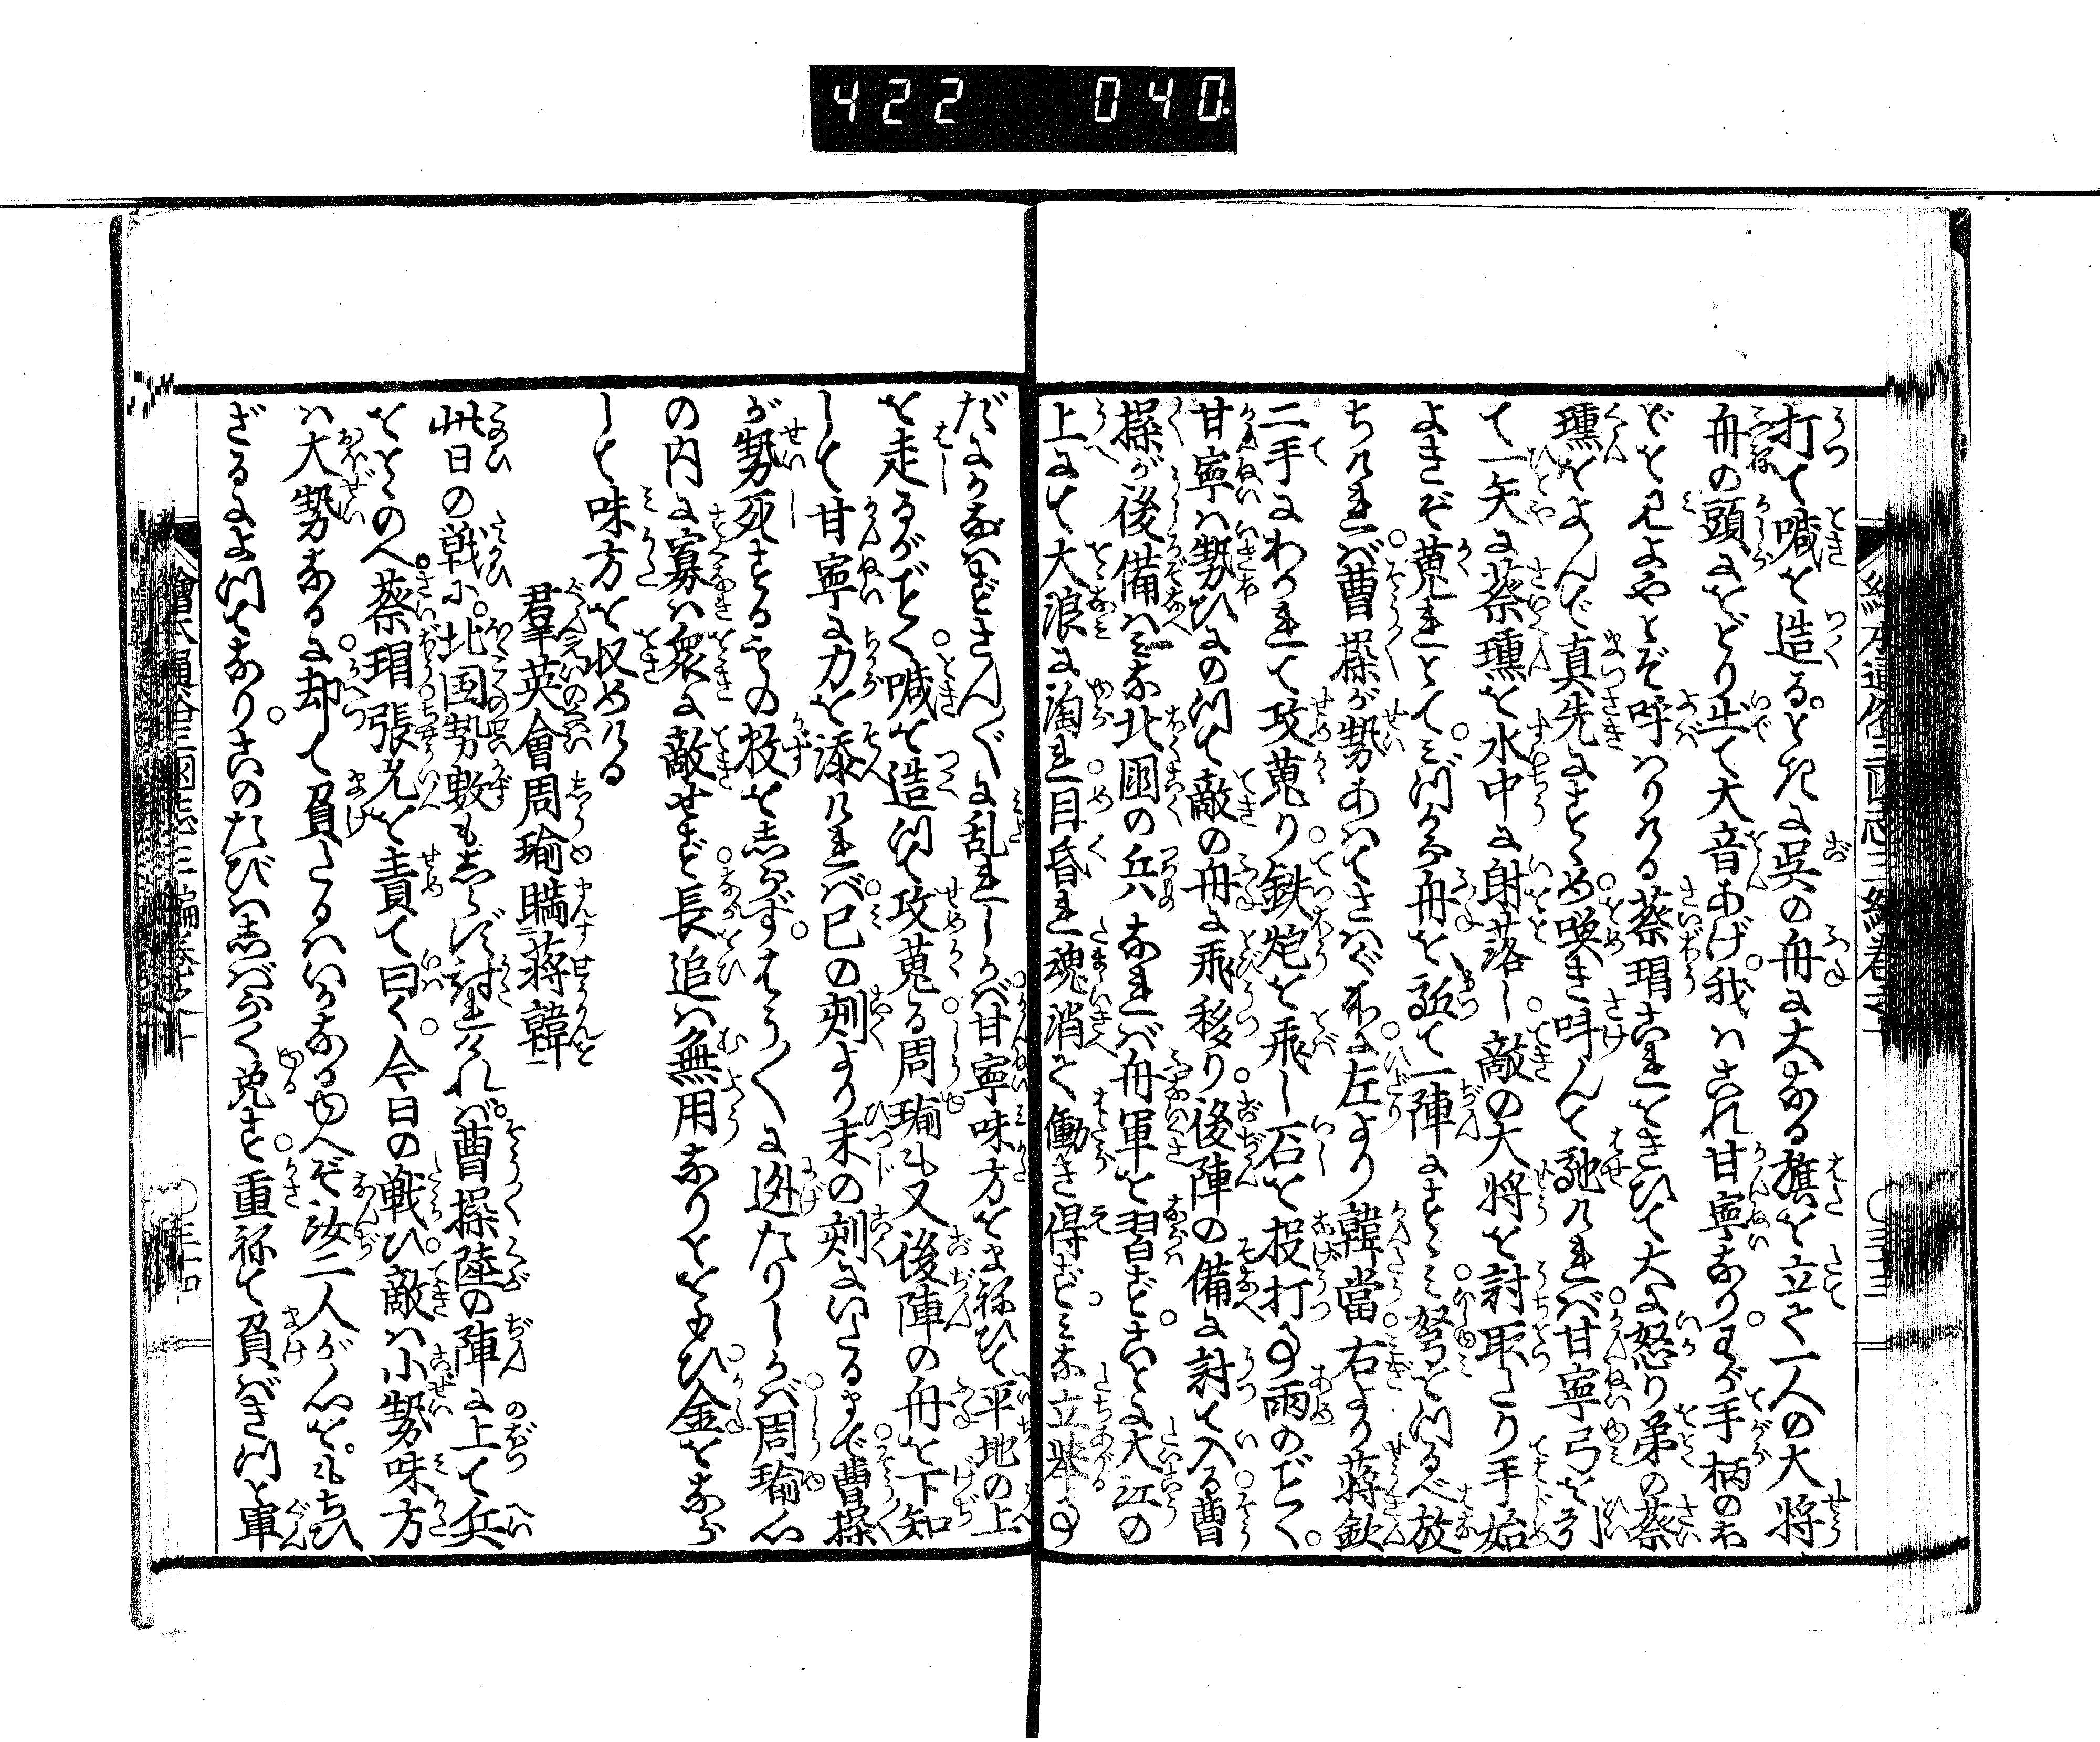 422 040
打て喊を造る。とたに呉の舟に大なる旗を立て一人の大将
舟の頭にをどり出て大音あげ我はこれ甘寧なり。わが手柄のほ
どを見よやとぞ呼はりける蔡瑁これをきひて大に怒り弟の蔡
壎をよんで真先にすゝめ喚き叫んで馳ければ甘寧弓を引
て一矢に蔡壎を水中に射落し敵の大将を討取たり手始
よきぞ蒐れとて。みづから舟を詆て一陣にすゝみ弩をつるべ放
ちければ曹操が勢あはてさはぐ所に左より韓當右より蒋欽
二手にわかれて攻蒐り鉄炮を飛し石を投打事雨のごとく。
甘寧は勢ひにのつて敵の舟に飛移り後陣の備に討て入る曹
操が後備はみな北国の兵なれば舟軍を習ず。ことに大江の
上にて大浪に淘れ目昏れ魂消て働き得ず。みな立挙る事
だにかなはずさんざんに乱れしかば甘寧味方をまねひて平地の上
を走るがごとく喊を造つて攻蒐る周瑜も又後陣の舟を下知
して甘寧に力を添ければ巳の刻より未の刻にいたるまで曹操
が勢死するものの数をしらず。はうはうに迯たりしかば周瑜心
の内に寡は衆に敵せず長追は無用なりとをもひ金をなら
して味方を収める
群英會周瑜瞞蒋韓
此日の戦に。北国勢数もしらず討れければ。曹操陸の陣に上て兵
をとゝのへ蔡瑁張允を責て曰く今日の戦ひ敵は小勢味方
は大勢なるに却て負たるはいかなるゆへぞ汝二人が心を。もちひ
ざるによつてなり。このたびはしばらく免す重ねて負ばきつと軍